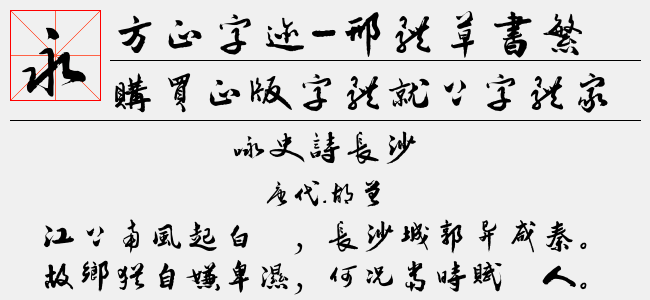 永
方正字迹-邢體草書繁
購買正版字體就上字體家
咏史詩長沙
唐代.胡曾
江上南風起白　，長沙城郭异咸秦。
故鄉猶自嫌卑濕，何况當時賦　人。